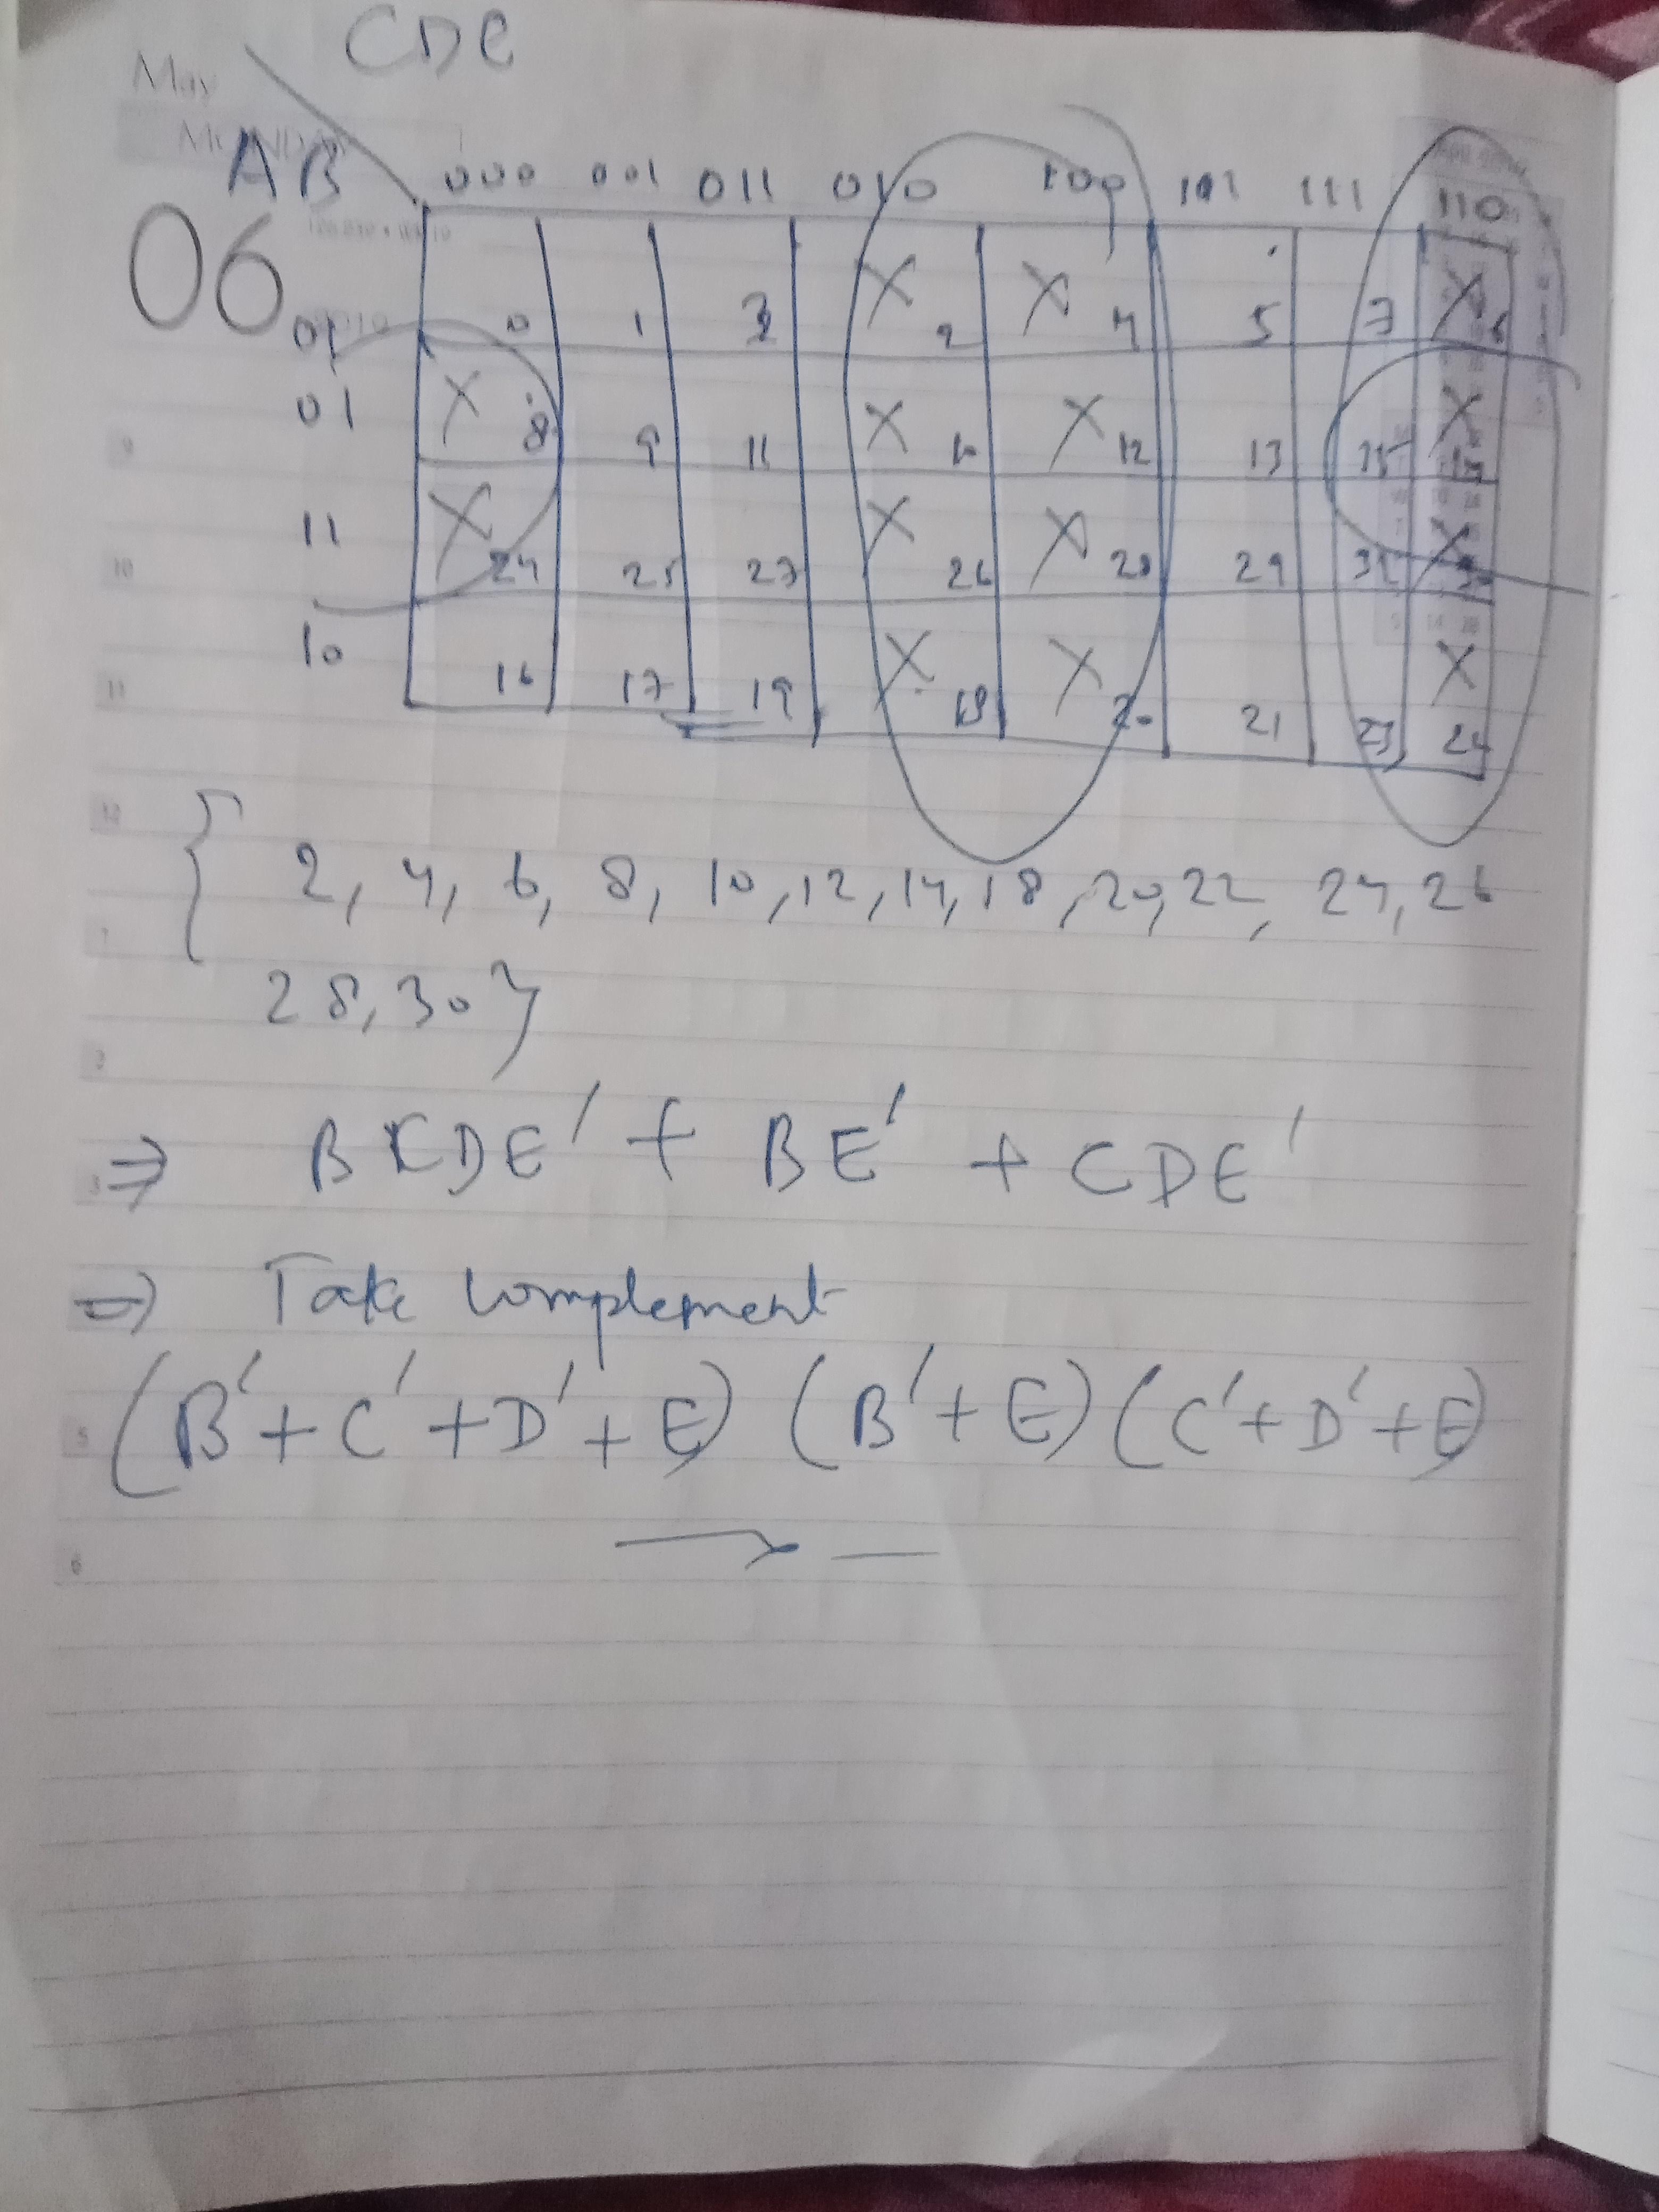 CDE
May
MONDAY
AB
06
000 001 011 010 100 101 111 110
01 0 1 3 X 2 X 4 5 7 X 6
01 X 8 9 11 X 10 X 12 13 15 X
11 X 24 25 27 X 26 X 28 29 31 X
10 16 17 19 X 18 X 20 21 23 X
{ 2, 4, 6, 8, 10, 12, 14, 18, 20, 22, 24, 26
28, 30 }
⇒ BCDE' + BE' + CDE'
⇒ Take complement
(B'+C'+D'+E) (B'+E) (C'+D'+E)
9
10
11
12
1
2
3
5
6